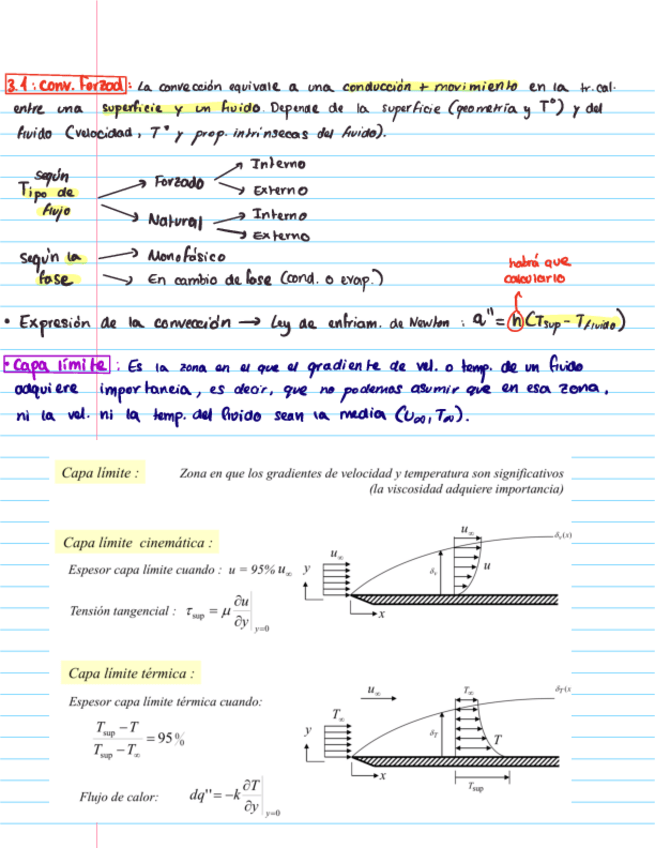 3.1: Conv. Forzad: La convección equivale a una conducción + movimiento en la tr. cal.
entre una superficie y un fluido. Depende de la superficie (geometría y Tº) y del
fluido (velocidad, Tº y prop. intrínsecas del fluido).
según
Tipo de
flujo
Forzado
Interno
Externo
Natural
Interno
Externo
según la
fase
Monofásico
En cambio de fase (cond. o evap.)
habrá que
calcularlo
• Expresión de la convección → Ley de enfriam. de Newton : q'' = h(Tsup - Tfluido)
• Capa límite : Es la zona en el que el gradiente de vel. o temp. de un fluido
adquiere importancia, es decir, que no podemos asumir que en esa zona,
ni la vel. ni la temp. del fluido sean la media (U∞, T∞).
Capa límite : Zona en que los gradientes de velocidad y temperatura son significativos
(la viscosidad adquiere importancia)
Capa límite cinemática :
Espesor capa límite cuando : u = 95% u∞
Tensión tangencial : τsup = μ ∂u/∂y |y=0
y
u∞
x
δv
u∞
u
δv(x)
Capa límite térmica :
Espesor capa límite térmica cuando:
Tsup − T / Tsup − T∞ = 95 %
Flujo de calor: dq'' = −k ∂T/∂y |y=0
u∞
y
T∞
x
δT
T∞
T
Tsup
δT(x